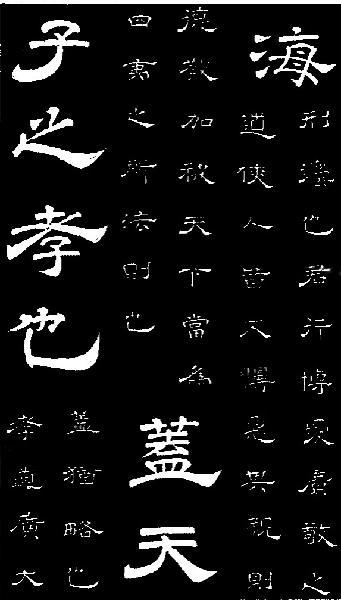 海
刑灋也君行博愛廣敬之
道使人皆不慢惡其親則
德教加被天下當為
四夷之所法則也
蓋天
子之孝也
蓋猶略也
孝道廣大